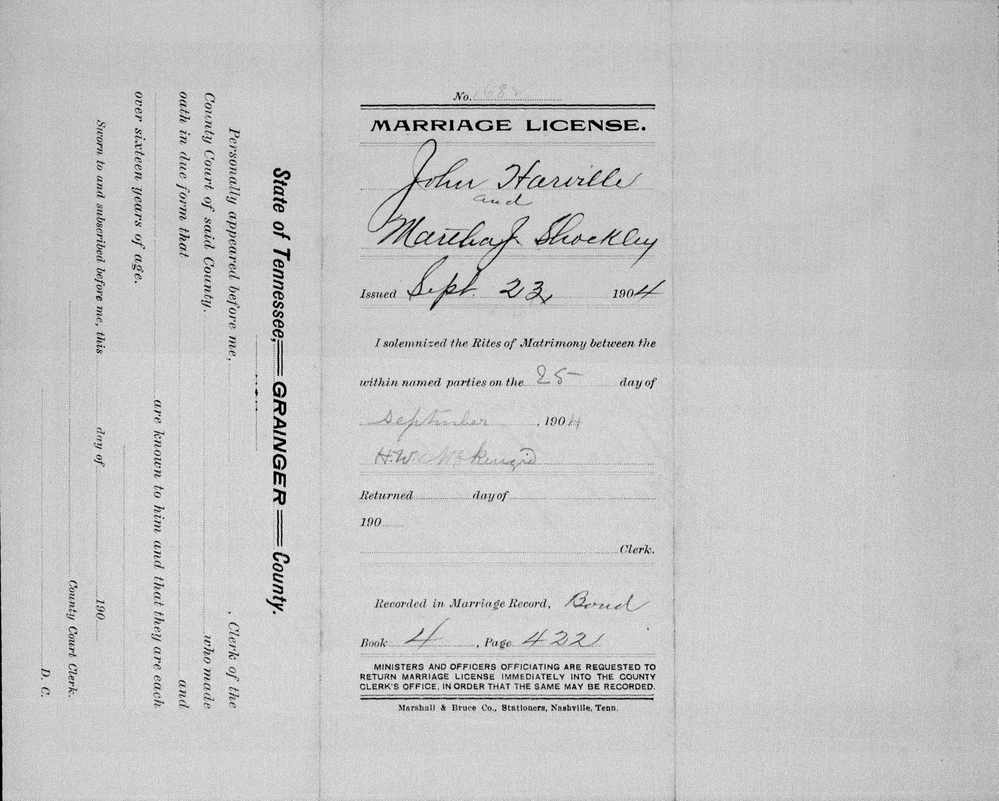 No. 1682
MARRIAGE LICENSE.
John Harville
and
Martha J. Shockley
Issued Sept. 23, 1904
I solemnized the Rites of Matrimony between the
within named parties on the 25 day of
September, 1904
H. W.
Returned day of
190
Clerk.
Recorded in Marriage Record, Bond
Book 4, Page 422
MINISTERS AND OFFICERS OFFICIATING ARE REQUESTED TO
RETURN MARRIAGE LICENSE IMMEDIATELY INTO THE COUNTY
CLERK'S OFFICE, IN ORDER THAT THE SAME MAY BE RECORDED.
Marshall & Bruce Co., Stationers, Nashville, Tenn.
State of Tennessee, GRAINGER County.
Personally appeared before me, , Clerk of the
County Court of said County. who made
oath in due form that and
are known to him and that they are each
over sixteen years of age.
Sworn to and subscribed before me, this day of 190
County Court Clerk.
D. C.